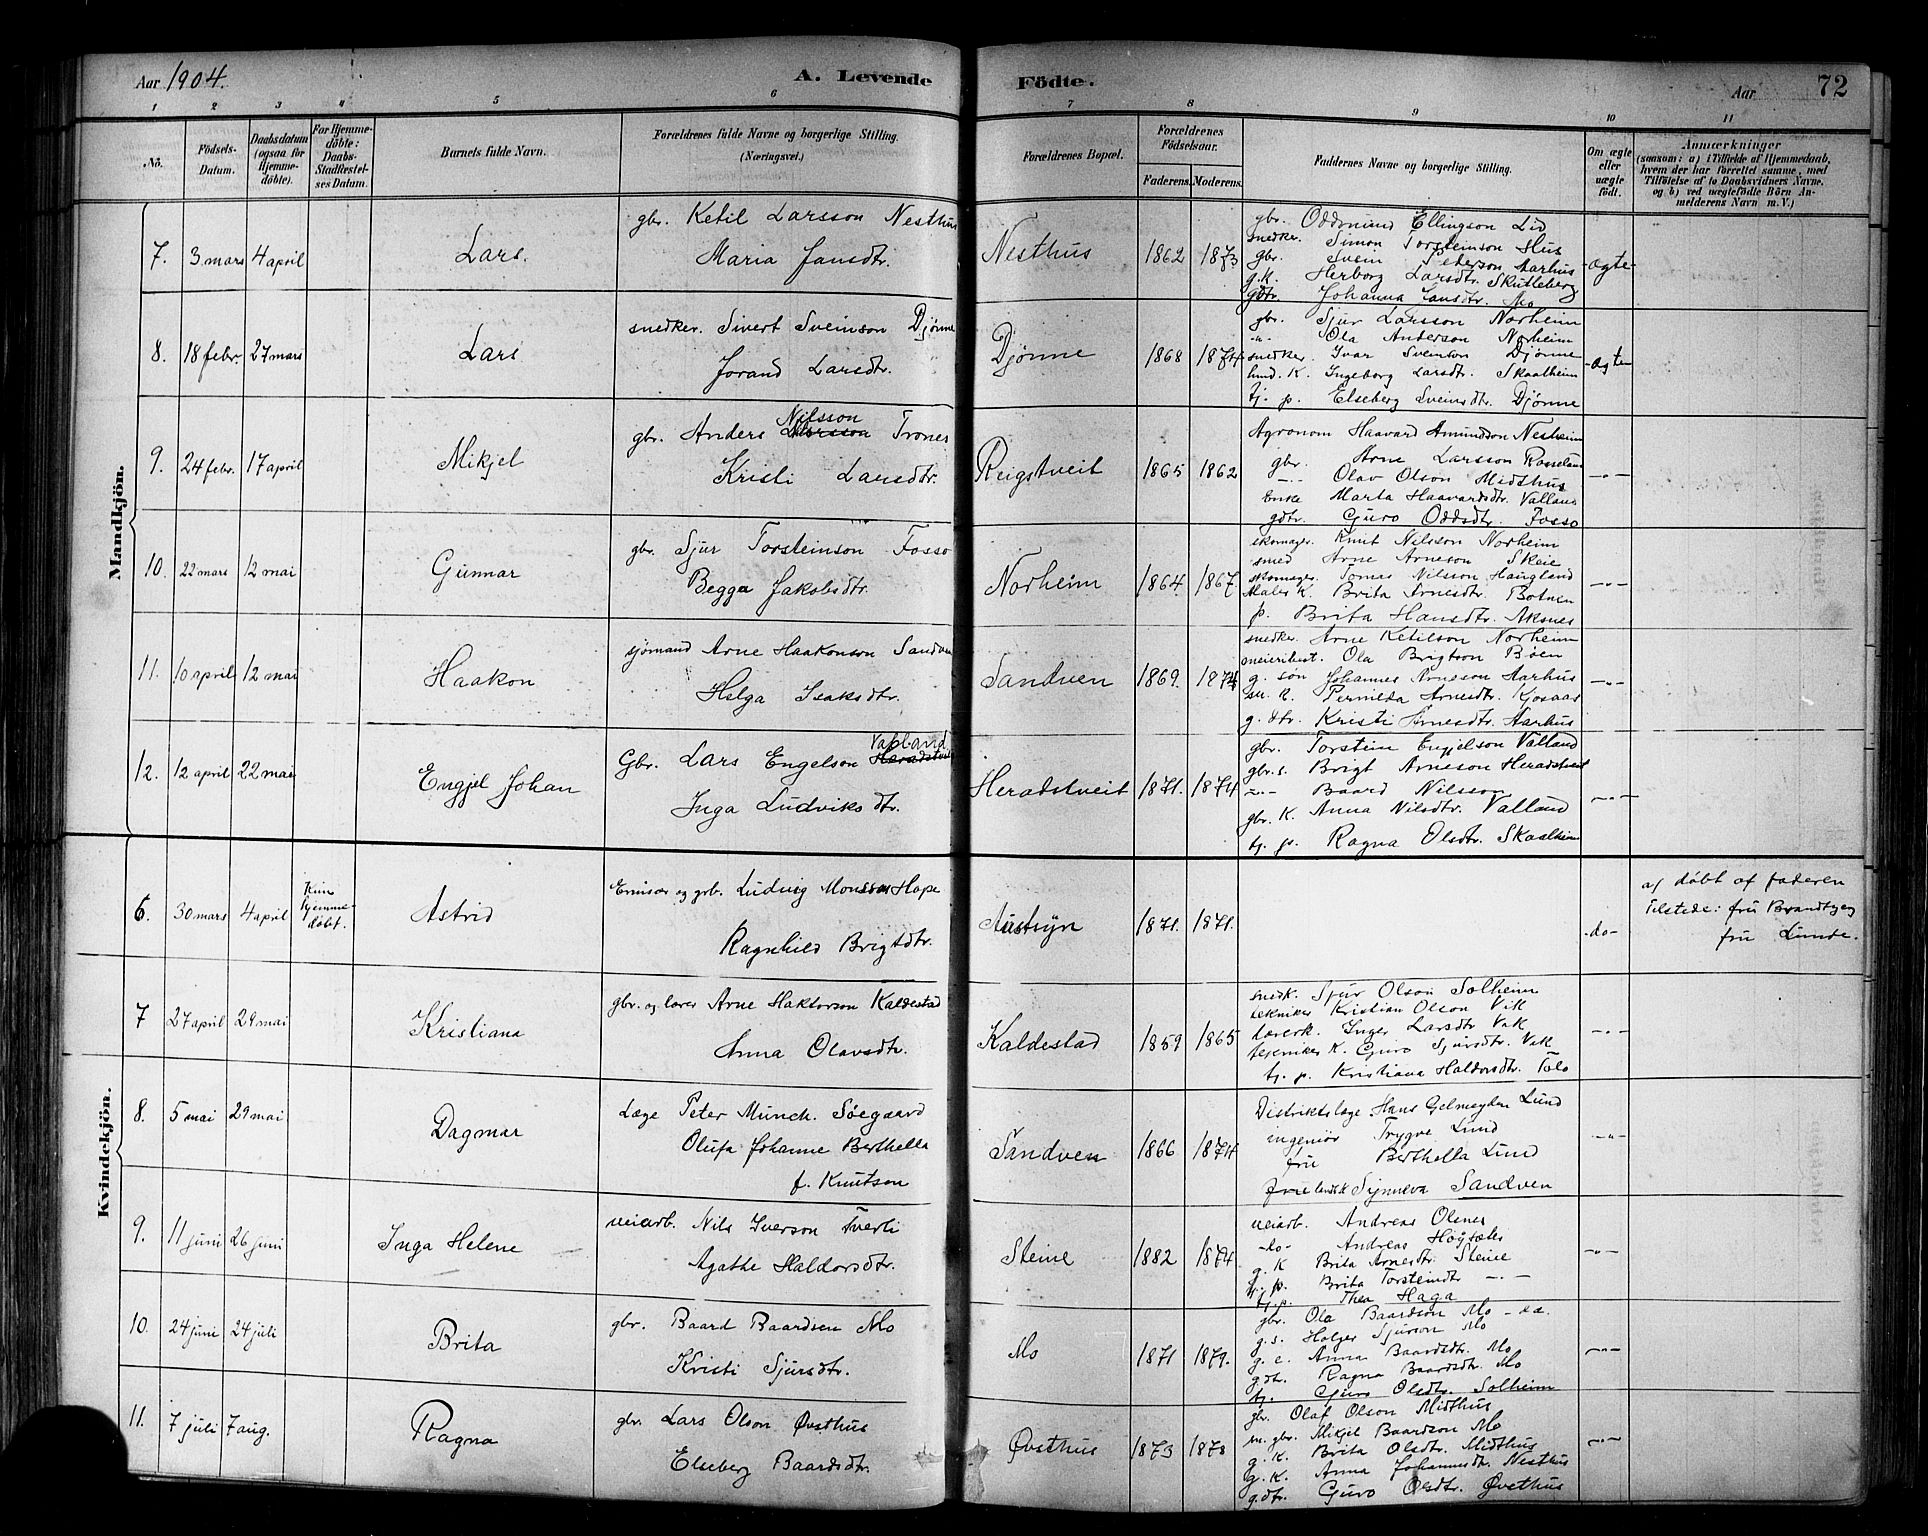 Aar 1904.
A. Levende
Födte.
Aar
72
1 2 3 4 5 6 7 8 9 10 11
No.
Födsels-Datum.
Daabsdatum (ogsaa for Hjemme-döbte).
For Hjemme-döbte: Daabs-Stadfæstel-ses Datum.
Barnets fulde Navn.
Forældrenes fulde Navne og borgerlige Stilling. (Næringsvei.)
Forældrenes Bopæl.
Forældrenes Födselsaar.
Faderens. Moderens.
Faddernes Navne og borgerlige Stilling.
Om ægte eller uægte födt.
Anmærkninger
(saasom: a) i Tilfælde af Hjemmedaab, hvem der har forrettet samme, med Tilföielse af to Daabsvidners Navne, og b) ved uægtefödte Börn An-melderens Navn m. V.)
Mandkjön.
7. 3 mars 4 april
Lars.
gbr. Ketil Larsson Nesthus
Maria Jansdtr.
Nesthus
1862 1873
gbr. Oddmund Ellingson Lid
snedker. Simon Torsteinson Hus
gbr. Svein Pederson Aarhus
g.k. Herborg Larsdtr. Skutleberg
gdtr. Johanna Jansdtr. Mo
ægte
8. 18 febr. 27 mars
Lars
snedker. Sivert Sveinson Djønne
Jorand Larsdtr.
Djønne
1868 1874
gbr. Sjur Larsson Norheim
-"- Ola Anderson Norheim
snedker. Ivar Sveinson Djønne
hmd. K. Ingeborg Larsdtr. Skaalheim
tj. p. Elseberg Sveinsdtr. Djønne
ægte
9. 24 febr. 17 april
Mikjel
Nilsson
gbr. Anders Larsson Trones
Kristi Larsdtr.
Reigstveit
1865 1862
Agronom Haavard Amundson Nesheim
gbr. Arne Larsson Rosseland
-"- Olav Olson Midthus
Enke Marta Haavardsdtr. Valland
gdtr. Guro Oddsdtr. Fosso
-"-
10. 22 mars 12 mai
Gunnar
gbr. Sjur Torsteinson Fosso
Begga Jakobsdtr.
Norheim
1864. 1867.
skomager. Knut Nilsson Norheim
smed Arne Arneson Skeie
skomager. Tomas Nilsson Haugland
Maler K. Brita Arnesdtr. Botnen
p. Brita Hansdtr. Aksnes
-"-
11. 10 april 12 mai
Haakon
sjømand Arne Haakonson Sandven
Helga Isaksdtr.
Sandven
1869. 1874
snedker. Arne Ketilson Norheim
meieribest. Ola Brigtson Bøen
g. søn Johannes Arneson Aarhus
sn. K. Pernilda Arnesdtr. Kjosaas
g. dtr. Kristi Arnesdtr. Aarhus
-"-
12. 12 april 22 mai
Engjel Johan
Valland
Gbr. Lars Engelson Heradstveit
Inga Ludviksdtr.
Heradstveit
1871. 1874
gbr. Torstein Engjelson Valland
gbr.s. Brigt Arneson Heradstveit
-"- Baard Nilsson
gbr. K. Anna Nilsdtr. Valland
tj. p. Ragna Olsdtr. Skaalheim
-"-
Kvindekjön.
6. 30 mars 4 april
Kun hjemme-døbt.
Astrid
Emisær og grb. Ludvig Monsson Hope
Ragnhild Brigtdtr.
Austsyn
1871. 1871.
-do-
a) døbt af faderen
Tilstede: fru Brandtzeg
fru Lunde.
7 27 april 29 mai
Kristiana
gbr. og lærer Arne Haktorson Kaldestad
Anna Olavsdtr.
Kaldestad
1859 1865
snedk. Sjur Olson Solheim
tekniker Kristian Olson Vik
lærerk. Inger Larsdtr. Vik
tekniker K. Guro Sjursdtr. Vik
tj. p. Kristiana Haldorsdtr. Tolo
-"-
8. 5 mai 29 mai
Dagmar
Læge Peter Munch. Søegaard
Olufa Johanne Berthella
f. Knutson
Sandven
1866 1874
Distriktslæge Hans Gelmeyden Lund
ingeniør Trygve Lund
fru Berthella Lund
Synneva Sandven
-"-
9. 11 juni 26 juni
Inga Helene
veiarb. Nils Iverson Tverli
Agathe Haldorsdtr.
Steine
1882 1874
veiarb. Andreas Olsnes
-do- Andreas Høysæter
g. K Brita Arnesdtr. Steine
tj. p. Brita Torsteindtr -"-
tj. p. Thea Haga
-"-
10. 24 juni 24 juli
Brita
gbr. Baard Baardsen Mo
Kristi Sjursdtr.
Mo
1871 1879.
gbr. Ola Baardson Mo
g. s. Holger Sjurson Mo
g. e. Anna Baardsdtr. Mo
gdtr. Ragna Baardsdtr. Mo
tj. Guro Olsdtr. Solheim
-"-
11. 7 juli 7 aug.
Ragna
gbr. Lars Olson Øvsthus
Elseberg Baardsdtr.
Øvsthus
1873 1878
gbr. Olaf Olson Midthus
m. gbr. Mikjel Baardson Mo
g. K. Brita Olsdtr. Midthus
g. K. Anna Johannesdtr. Nesthus
g.dtr. Guro Olsdtr. Øvsthus
-"-